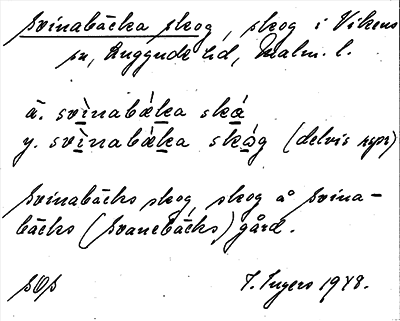 Svinabäcka skog, skog i Vikens
sn, Luggude hd, Malm. l.
ä. svìnabǽka skå
y. svìnabǽka skåg (delvis rspr)
Svinabäcks skog, skog å Svina-
bäcks (Svanebäcks) gård.
I. Ingers 1948.